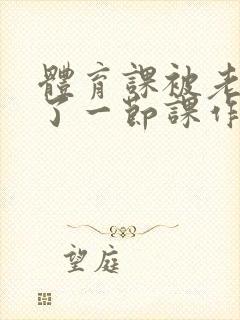 體育課被老
了一節課作
望庭